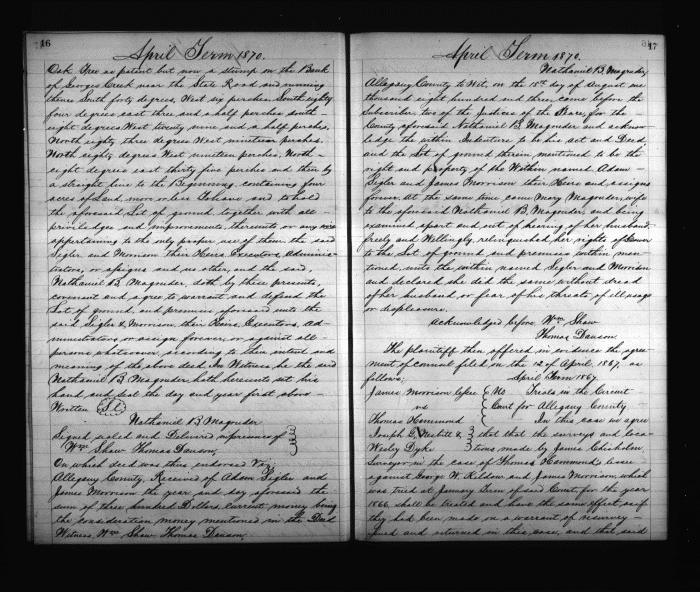 16
April Term 1870.
Oak Tree as patent but now a stump on the Bank
of Georges Creek near the State Road and running
thence South forty degrees, West six perches, South eighty
four degrees east three and a half perches south-
eight degrees West twenty nine and a half perches,
North eighty three degrees West nineteen perches,
North eighty degrees West nineteen perches, North-
eight degrees east thirty five perches and then by
a straight line to the Beginning, containing four
acres of Land, more or less To have and to hold
the aforesaid Lot of ground together with all
priviledges and improvements, thereunto or any wise
appertaining to the only proper use of them the said
Sigler and Morrison their Heirs, Executors, Adminis-
trators, or assigns and no other, and the said,
Nathaniel B. Magruder, doth by these presents,
covenant and agree to warrant and defend the
Lot of ground, and premises aforesaid unto the
said Sigler & Morrison, their Heirs, Executors, ad-
ministrators or assigns forever, or against all-
persons whatsoever, according to then intent and
meaning of the above deed. In Witness, he the said
Nathaniel B. Magruder hath hereunto set his
hand and seal the day and year first above-
Written
Nathaniel B Magruder
Signed sealed and Delivered in presence of
Wm Shaw Thomas Dawson,
On which deed was thus endorsed Viz,
Allegany County, Received of Adam Sigler and
James Morrison the year and day aforesaid the
sum of three hundred Dollars, current money being
the consideration money mentioned in the Deed
Witness, Wm Shaw Thomas Dawson,
17
April Term 1870.
Nathaniel B. Magruder,
Allegany County to Wit, on the 15th day of August one
thousand eight hundred and three, came before the
Subscriber, two of the Justices of the Peace, for the
County aforesaid Nathaniel B. Magruder and acknow-
ledge the within Indenture to be his act and Deed,
and the Lot of ground therein mentioned to be the
right and property of the Within named Adam-
Sigler and James Morrison their Heirs and assigns
forever. At the same time came Mary Magruder, wife
to the aforesaid Nathaniel B. Magruder, and being
examined apart and out of hearing of her husband
freely and Willingly, relinquished her rights of Dower
to the Lot of ground and premises within men-
tioned, unto the within named Sigler and Morrison
and declared she did the same without dread
of her husband or fear of his threats of ill usage
or displeasure.
Acknowledged before Wm Shaw
Thomas Dawson.
The plaintiff then offered in evidence the agree-
ment of counsel filed on the 12 of April, 1867, as
follows; April Term 1867.
James Morrison lessee No Trials in the Circuit
vs Court for Allegany County
Thomas Hammond In this case we agree
Joseph G. Nesbitt & that the surveys and loca-
Wesley Dyke tions made by James Chisholm
Surveyor in the case of Thomas Hammond's lessee
against George W. Kildow and James Morrison, which
was tried at January Term of said Court for the year
1866, shall be treated and have the same effect as if
they had been made on a warrant of resurvey-
issued and returned in this case, and that said